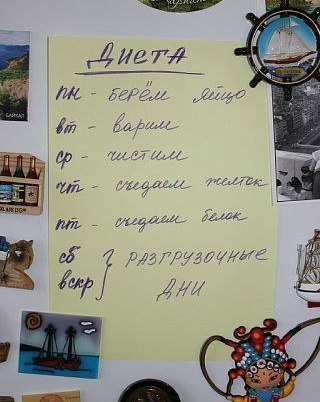 ДИЕТА
пн - берём яйцо
вт - варим
ср - чистим
чт - съедаем желток
пт - съедаем белок
сб
вскр } РАЗГРУЗОЧНЫЕ
ДНИ
БАЙКАЛ